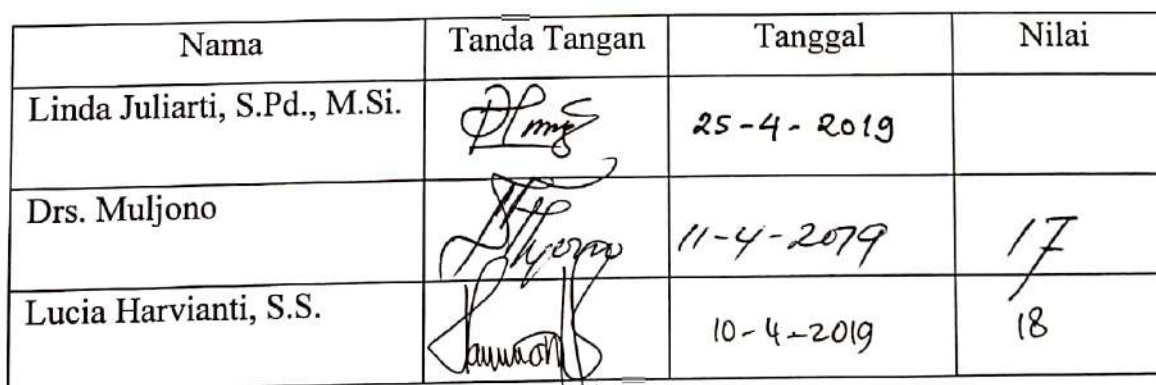 Nama Tanda Tangan Tanggal Nilai
Linda Juliarti, S.Pd., M.Si. 25-4-2019
Drs. Muljono 11-4-2019 17
Lucia Harvianti, S.S. 10-4-2019 18